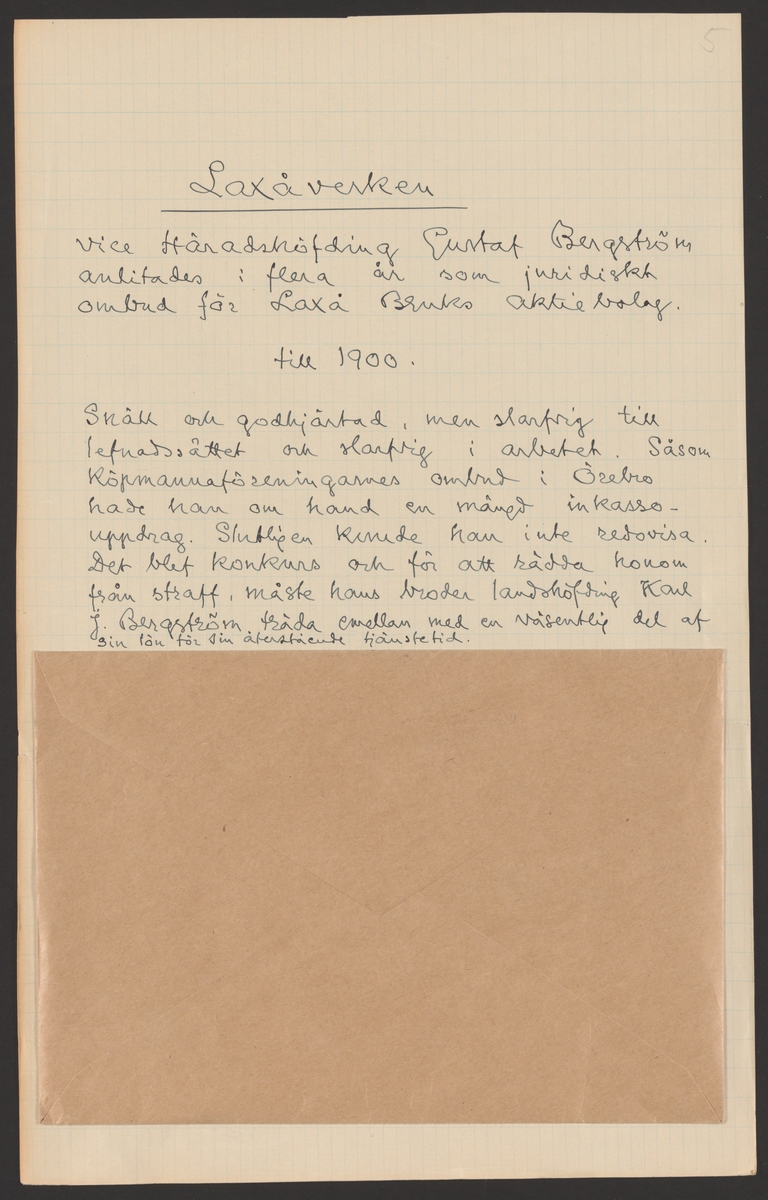 5
Laxåverken
Vice Häradshöfding Gustaf Bergström
anlitades i flera år som juridiskt
ombud för Laxå Bruks Aktiebolag.
till 1900.
Snäll och godhjärtad, men slarfvig till
lefnadssättet och slarfvig i arbetet. Såsom
Köpmannaföreningarnes ombud i Örebro
hade han om hand en mängd inkasso-
uppdrag. Slutligen kunde han inte redovisa.
Det blef konkurs och för att rädda honom
från straff, måste hans broder landshöfding Karl
J. Bergström, träda emellan med en väsentlig del af
sin lön för sin återstående tjänstetid.